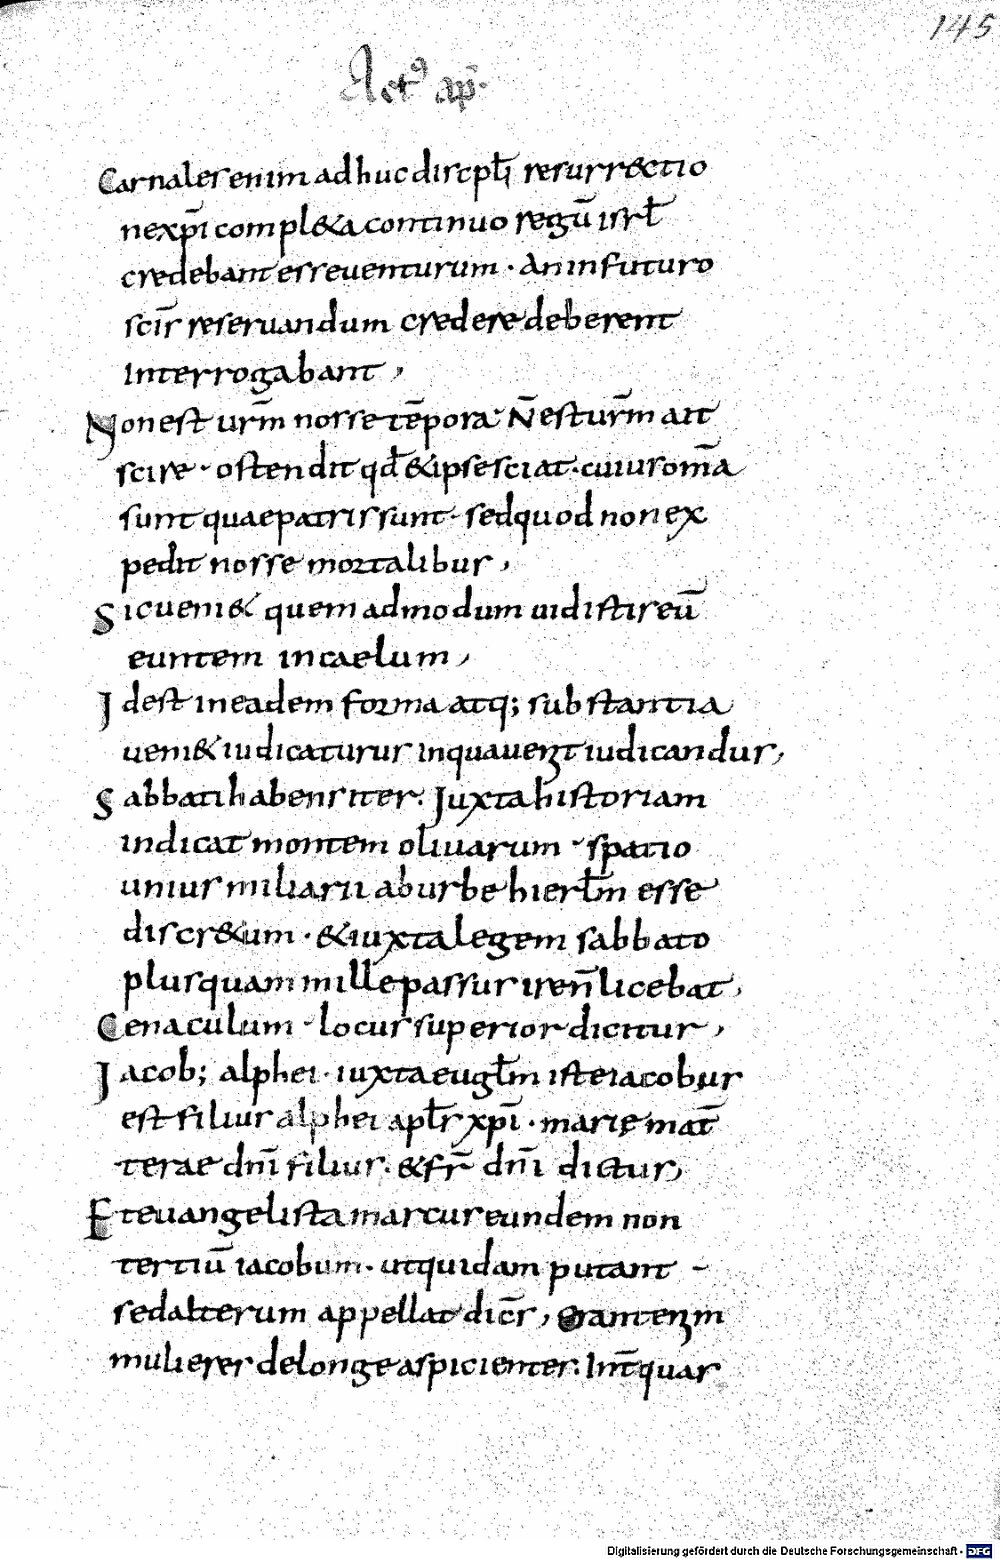 145
Act᾽ ap̄.
Carnales enim adhuc discpłi resurrectio
ne xp̄i completa continuo regnū isrł
credebant esse uenturum · An in futuro
scīs reseruandum credere deberent
Interrogabant,
Non est ur̄m nosse tēpora N̄ est ur̄m ait
scire · ostendit qđ & ipse sciat · cuius om̄a
sunt quae patris sunt · sed quod non ex
pedit nosse mortalibus,
Sic ueni& quem admodum uidistis eū
euntem in caelum,
Id est in eadem forma atq; substantia
ueni& iudicaturus in qua uenerat iudicandus,
Sabbati habens iter. Juxta historiam
indicat montem oliuarum · spatio
unius miliarii ab urbe hierłm esse
discr&um · & iuxta legem sabbato
plusquam mille passus ire n̄ licebat,
Cenaculum · locus superior dicitur,
Jacob; alphei · iuxta eugłm iste iacobus
est filius alphei apłs xp̄i · marię mat̄
terae dn̄i filius · & fr̄ dn̄i dictus,
Et euangelista marcus eundem non
tertiū iacobum · ut quidam putant -
sed alterum appellat dic̄s, Erant enim
mulieres de longe aspicientes: Int̄ quas
Digitalisierung gefördert durch die Deutsche Forschungsgemeinschaft - DFG